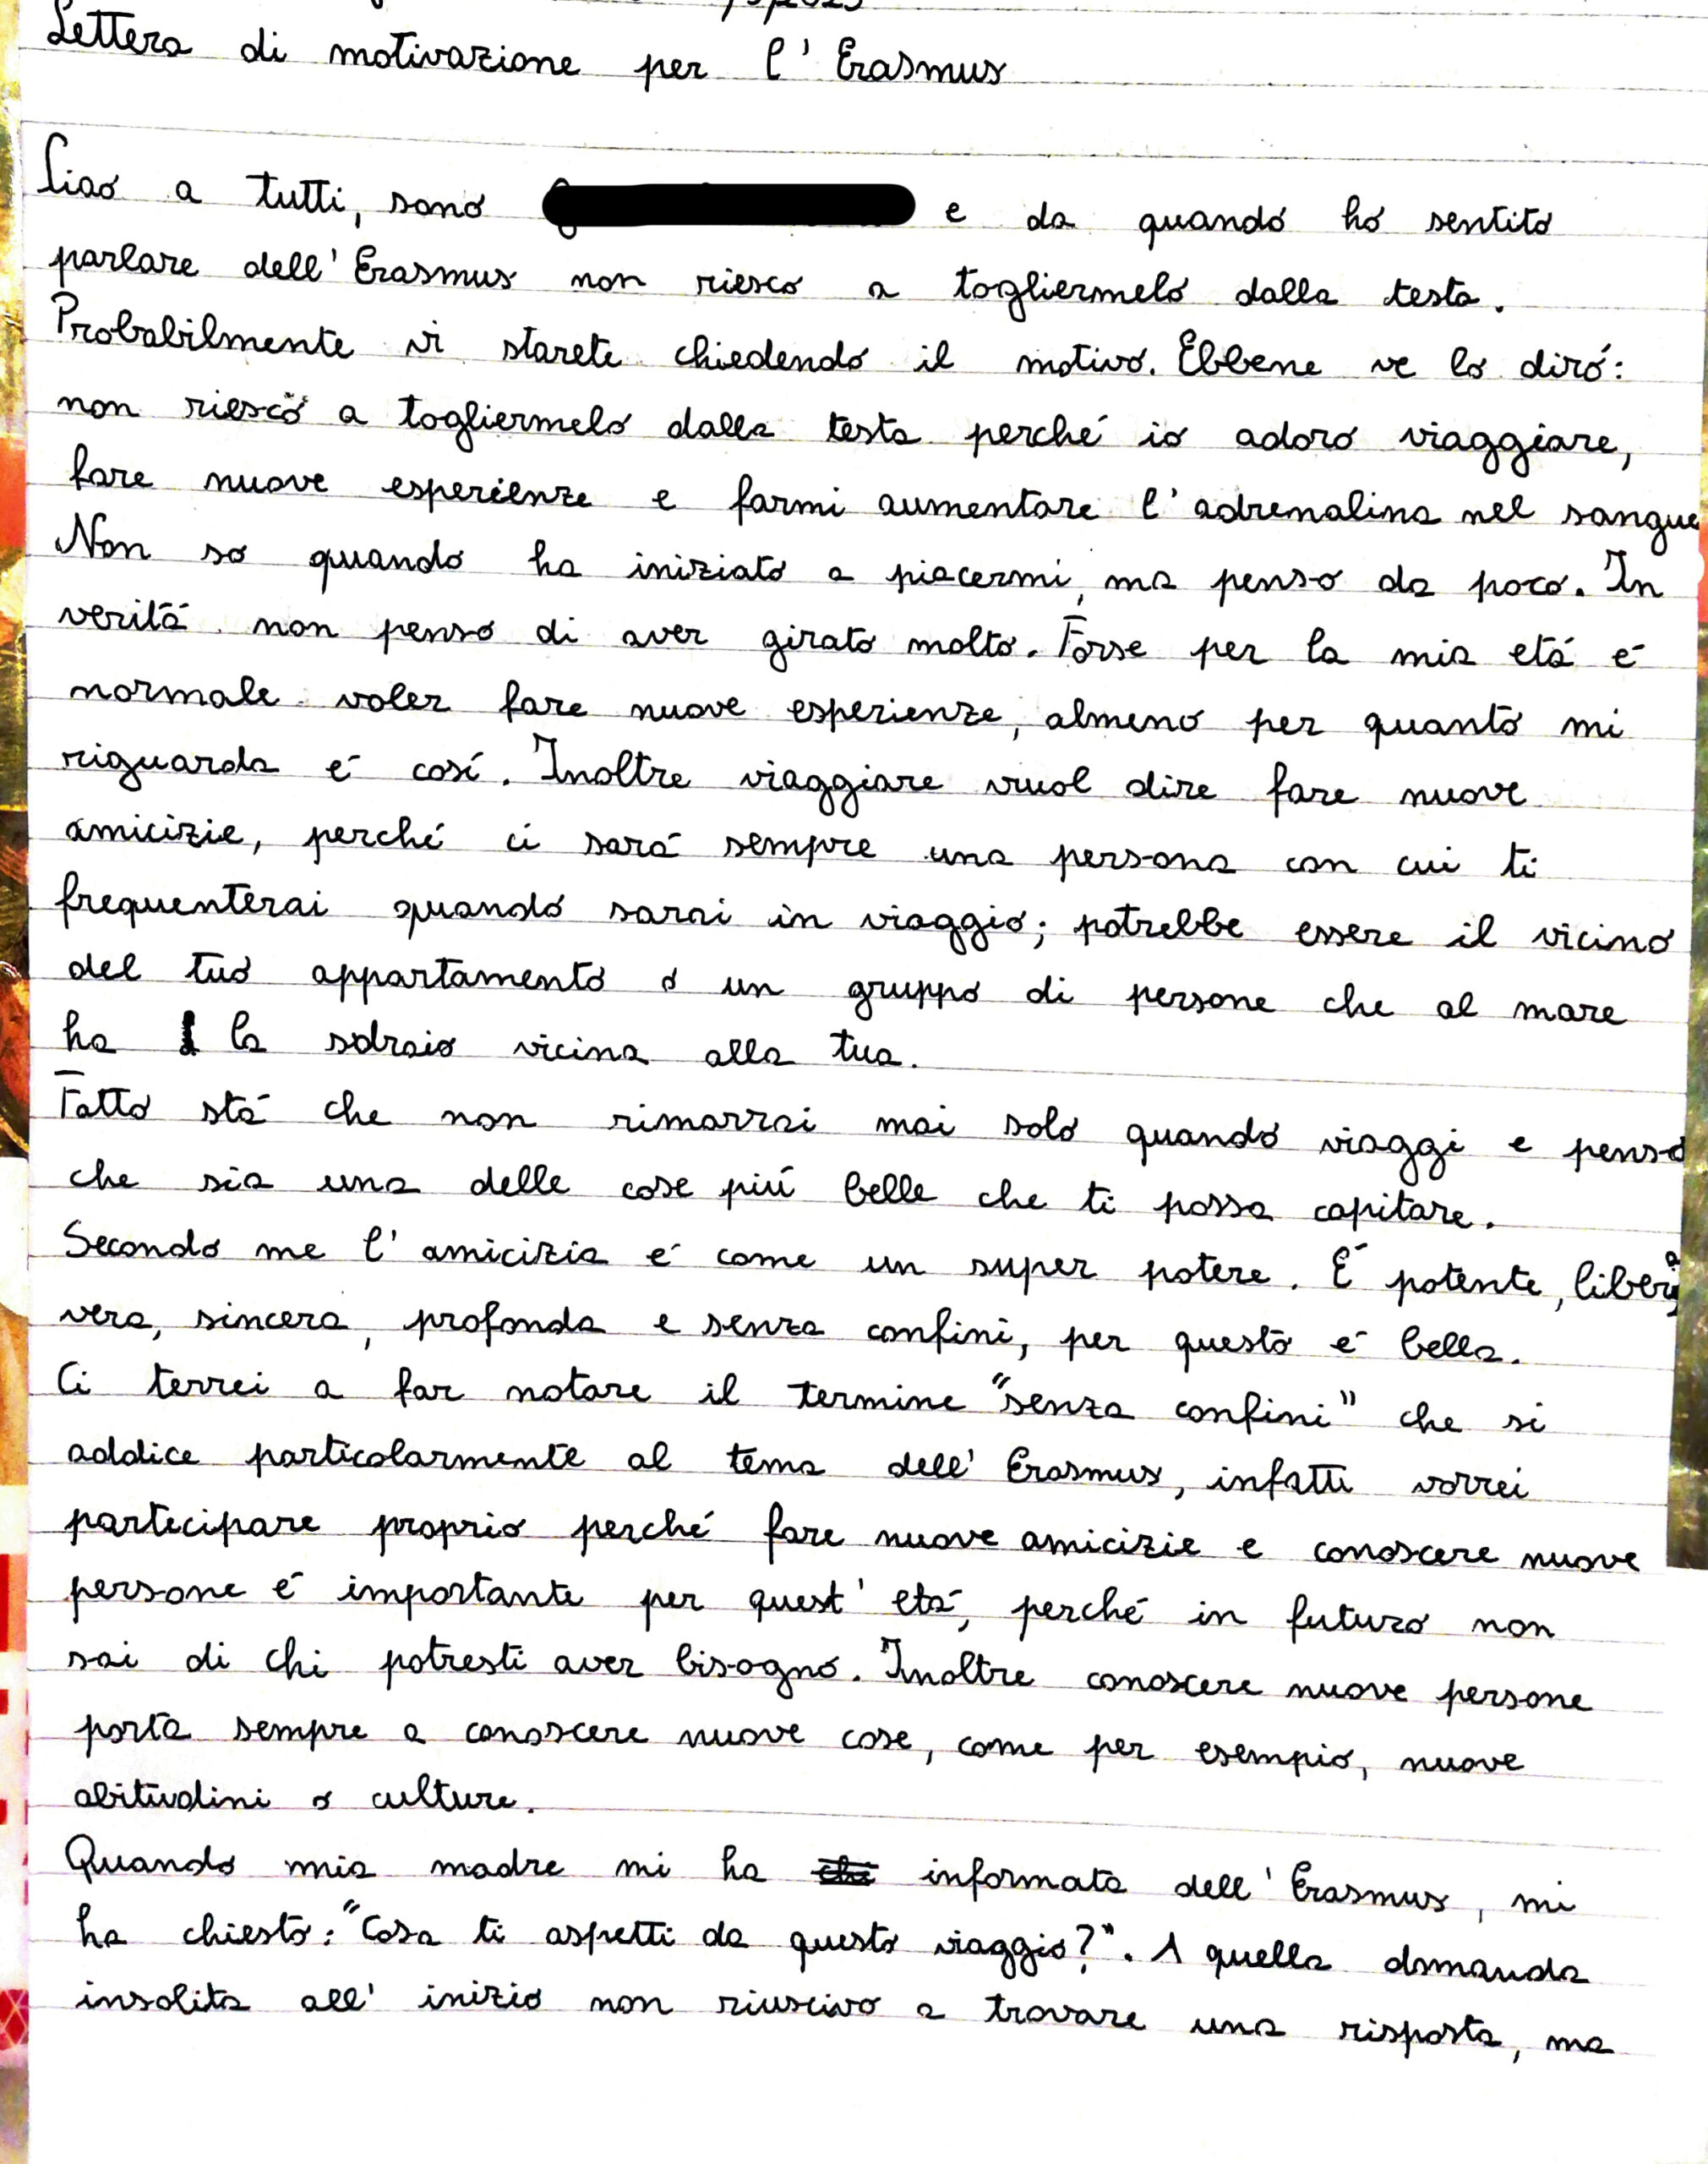 Lettera di motivazione per l'Erasmus
Ciao a tutti, sono e da quando ho sentito
parlare dell'Erasmus non riesco a togliermelo dalla testa.
Probabilmente vi starete chiedendo il motivo. Ebbene ve lo diró:
non riesco a togliermelo dalla testa perché io adoro viaggiare,
fare nuove esperienze e farmi aumentare l'adrenalina nel sangue
Non so quando ha iniziato a piacermi, ma penso da poco. In
veritá non penso di aver girato molto. Forse per la mia etá é
normale voler fare nuove esperienze, almeno per quanto mi
riguarda é cosí. Inoltre viaggiare vuol dire fare nuove
amicizie, perché ci sará sempre una persona con cui ti
frequenterai quando sarai in viaggio; potrebbe essere il vicino
del tuo appartamento o un gruppo di persone che al mare
ha la sdraio vicina alla tua.
Fatto stá che non rimarrai mai solo quando viaggi e penso
che sia una delle cose piú belle che ti possa capitare.
Secondo me l'amicizia é come un super potere. É potente, libera
vera, sincera, profonda e senza confini, per questo é bella.
Ci terrei a far notare il termine "senza confini" che si
addice particolarmente al tema dell'Erasmus, infatti vorrei
partecipare proprio perché fare nuove amicizie e conoscere nuove
persone é importante per quest'etá, perché in futuro non
sai di chi potresti aver bisogno. Inoltre conoscere nuove persone
porta sempre a conoscere nuove cose, come per esempio, nuove
abitudini o culture.
Quando mia madre mi ha informata dell'Erasmus, mi
ha chiesto: "Cosa ti aspetti da questo viaggio?". A quella domanda
insolita all'inizio non riuscivo a trovare una risposta, ma